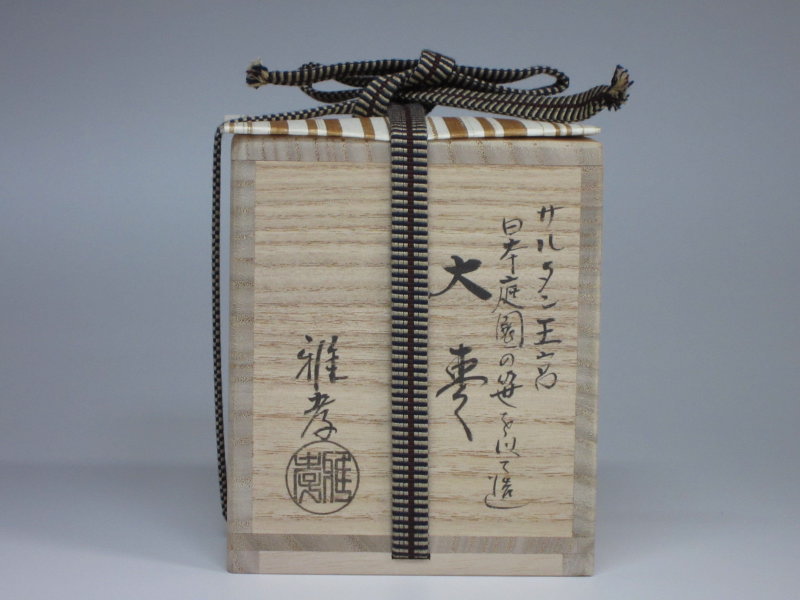 サルタン王宮
日本庭園の笹を以て造
大棗
雅孝
雅孝